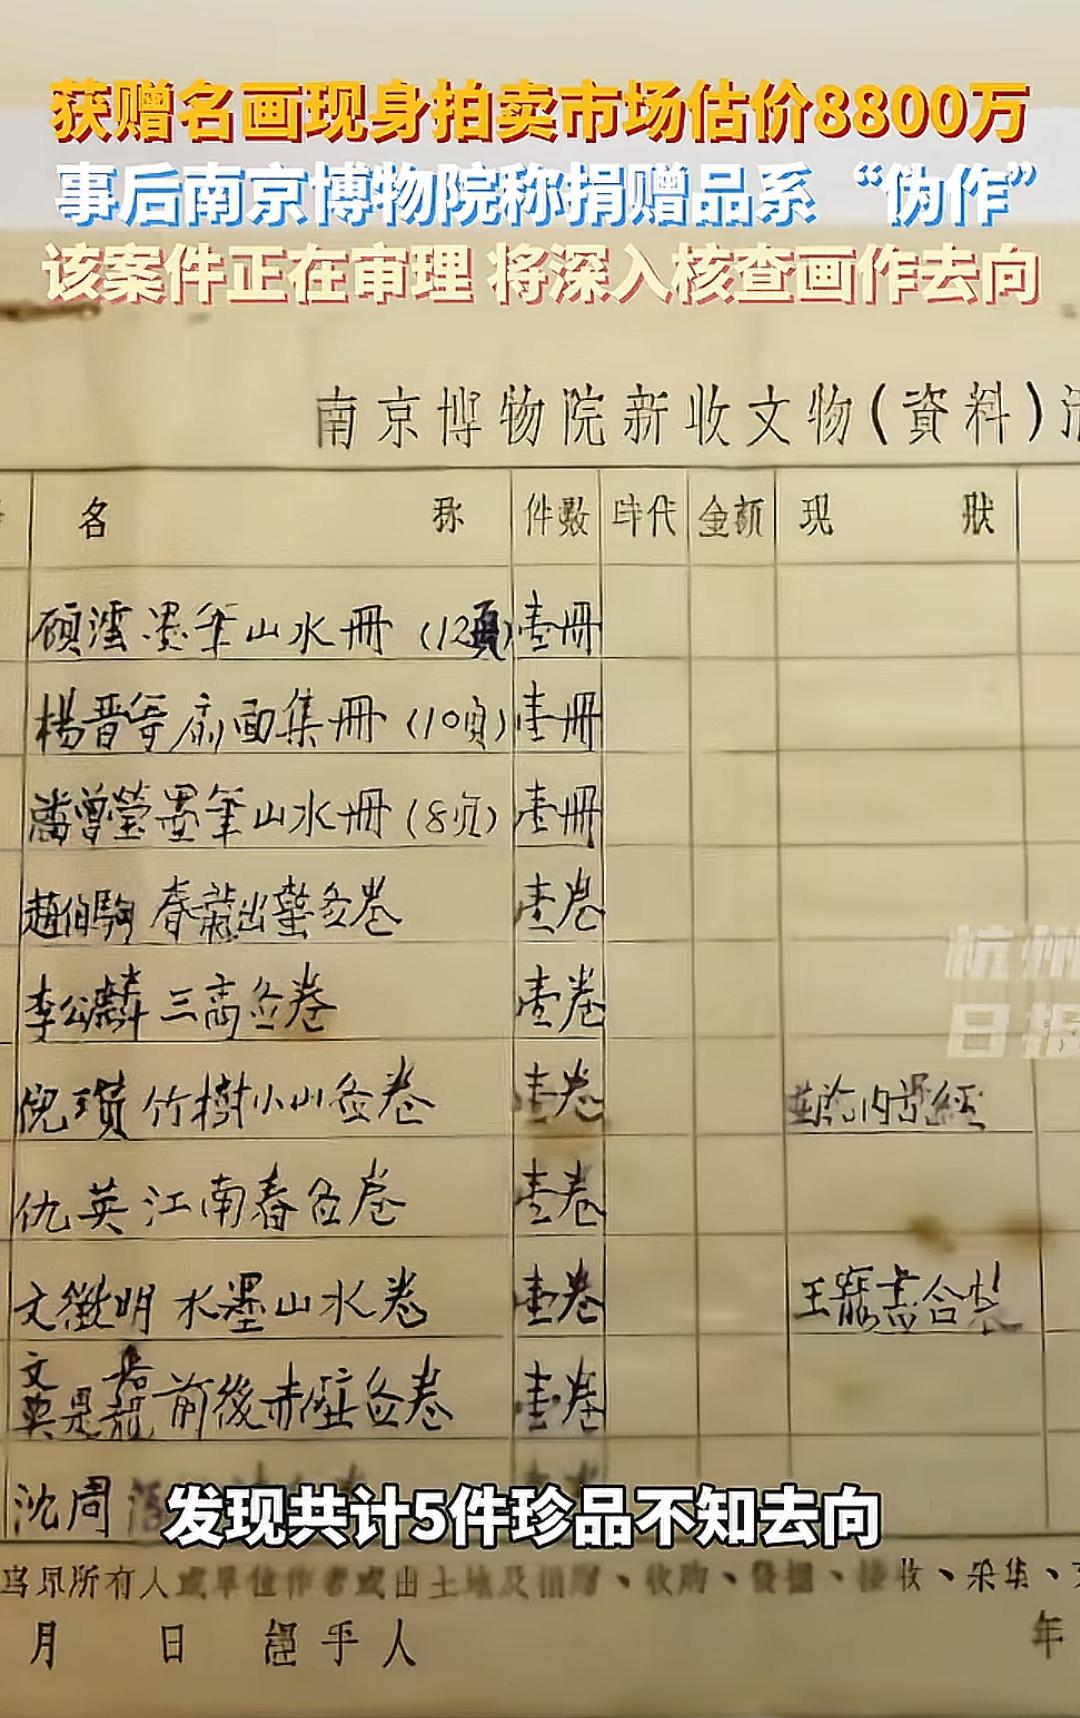 获赠名画现身拍卖市场估价8800万
事后南京博物院称捐赠品系“伪作”
该案件正在审理 将深入核查画作去向
南京博物院新收文物(資料)
名 称 件数 时代 金额 现 狀
顾澐墨笔山水册(12頁) 壹册
楊晋等扇面集册(10页) 壹册
潘曾瑩墨笔山水册(8页) 壹册
趙伯駒 春 圖卷 壹卷
李公麟 三高圖卷 壹卷
倪瓚 竹樹小山圖卷 壹卷
仇英 江南春圖卷 壹卷
文徵明 水墨山水卷 壹卷 王 合
文 前後赤壁圖卷 壹卷
杭州
日报
沈周
发现共计5件珍品不知去向
原所有人或單位作者或出土地及捐贈、收购、發掘、接收、采集、
月 日 經手人 年